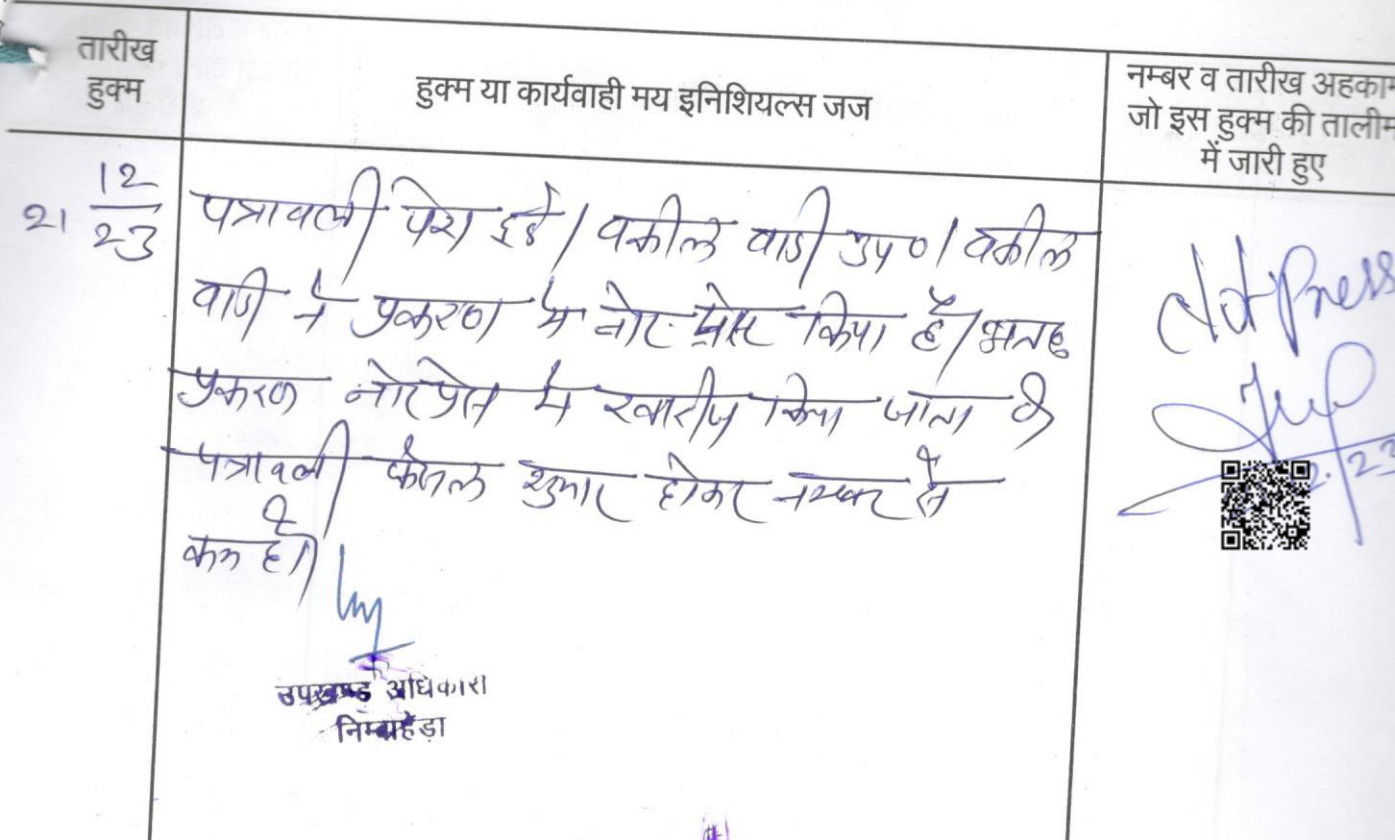 तारीख
हुक्म
हुक्म या कार्यवाही मय इनिशियल्स जज
नम्बर व तारीख अहकाम
जो इस हुक्म की तालीम
में जारी हुए
21 12/23
पत्रावली पेश हुई। वकील वादी उप०। वकील
वादी ने प्रकरण में नोट प्रेस किया है। अतः
प्रकरण नोटप्रेस में खारीज किया जाता है
पत्रावली फैसल शुमार होकर नम्बर से
कम हो।
Not Press
उपखण्ड अधिकारी
निम्बाहेड़ा